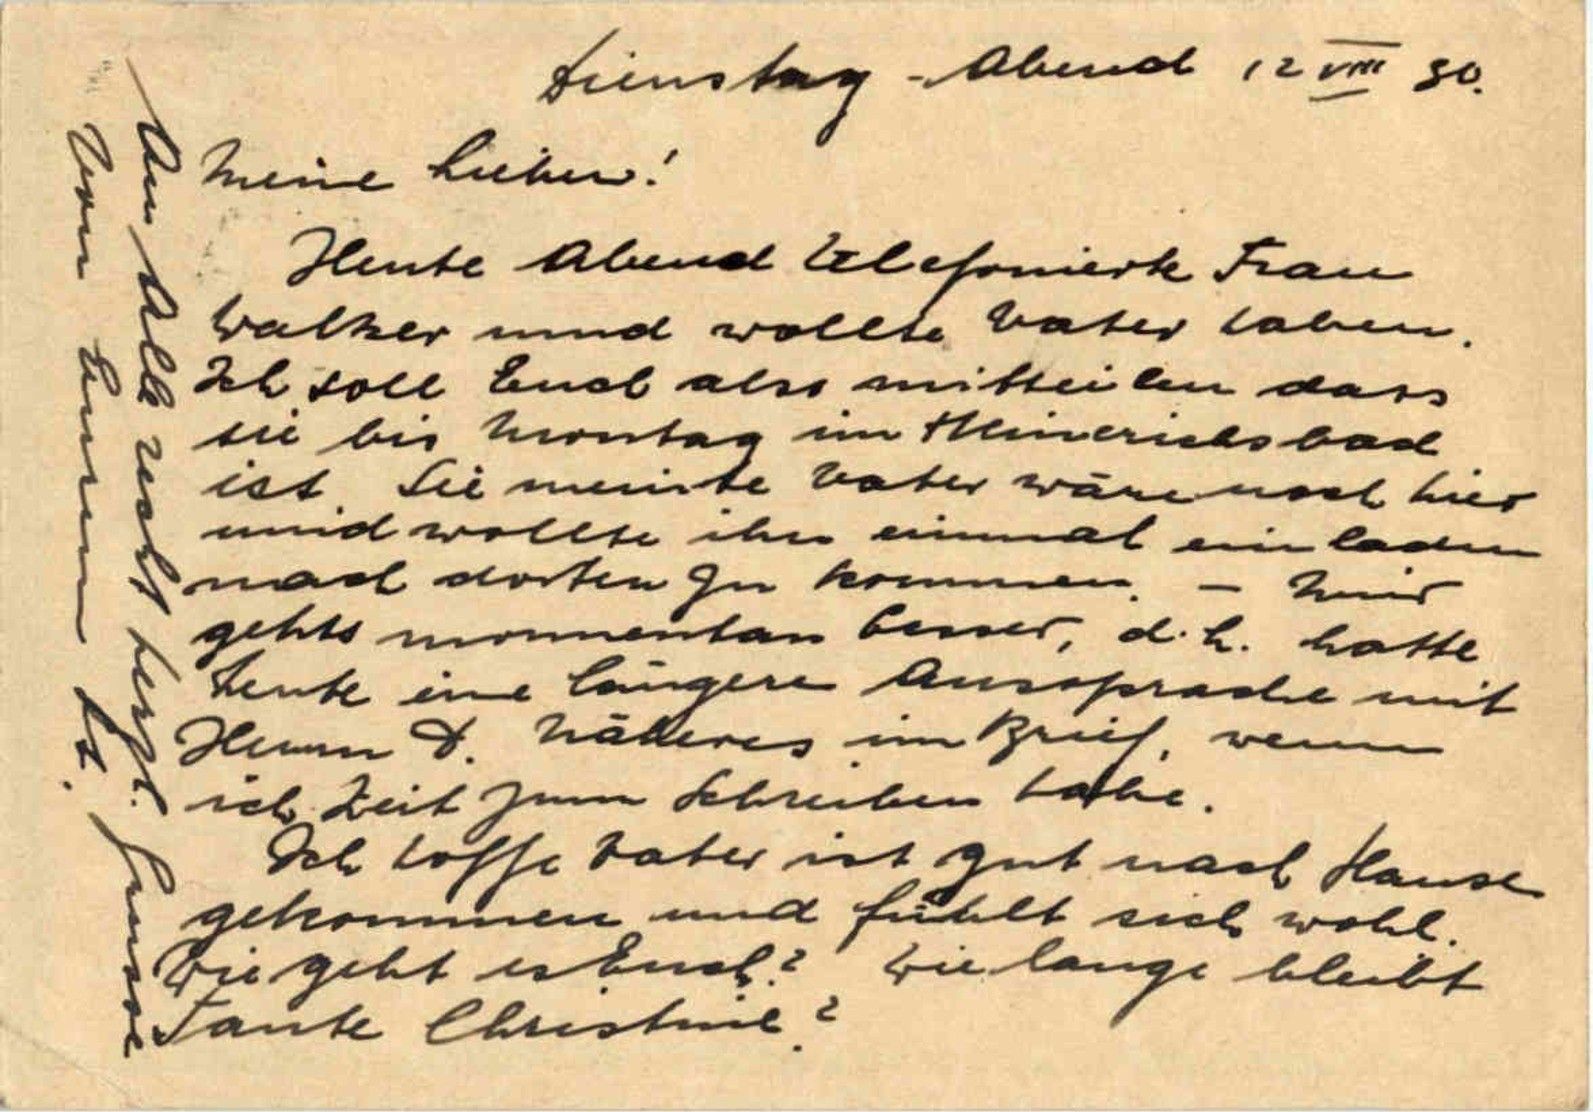 Dienstag - Abend 12 VIII 30.
Meine Lieben!
Heute Abend telefonierte Frau
Walker und wollte Vater haben.
Ich soll Euch also mitteilen dass
sie bis Montag im Heinrichsbad
ist. Sie meinte Vater wäre noch hier
und wollte ihn einmal einladen
nach dorten zu kommen. – Mir
gehts momentan besser, d.h. hatte
heute eine längere Aussprache mit
Herrn D. Näheres im Brief, wenn
ich Zeit zum Schreiben habe.
Ich hoffe Vater ist gut nach Hause
gekommen und fühlt sich wohl.
Wie geht es Euch? Wie lange bleibt
Tante Christine?
An Alle recht herzl. Grüsse
von Eurem